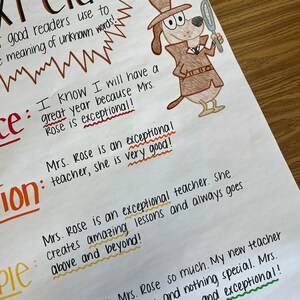 good readers use to
meaning of unknown words!
I know I will have a
great year because Mrs.
Rose is exceptional!
Mrs. Rose is an exceptional
teacher, she is very good!
Mrs. Rose is an exceptional teacher. She
creates amazing lessons and always goes
above and beyond!
Mrs. Rose so much. My new teacher
and nothing special. Mrs.
exceptional!